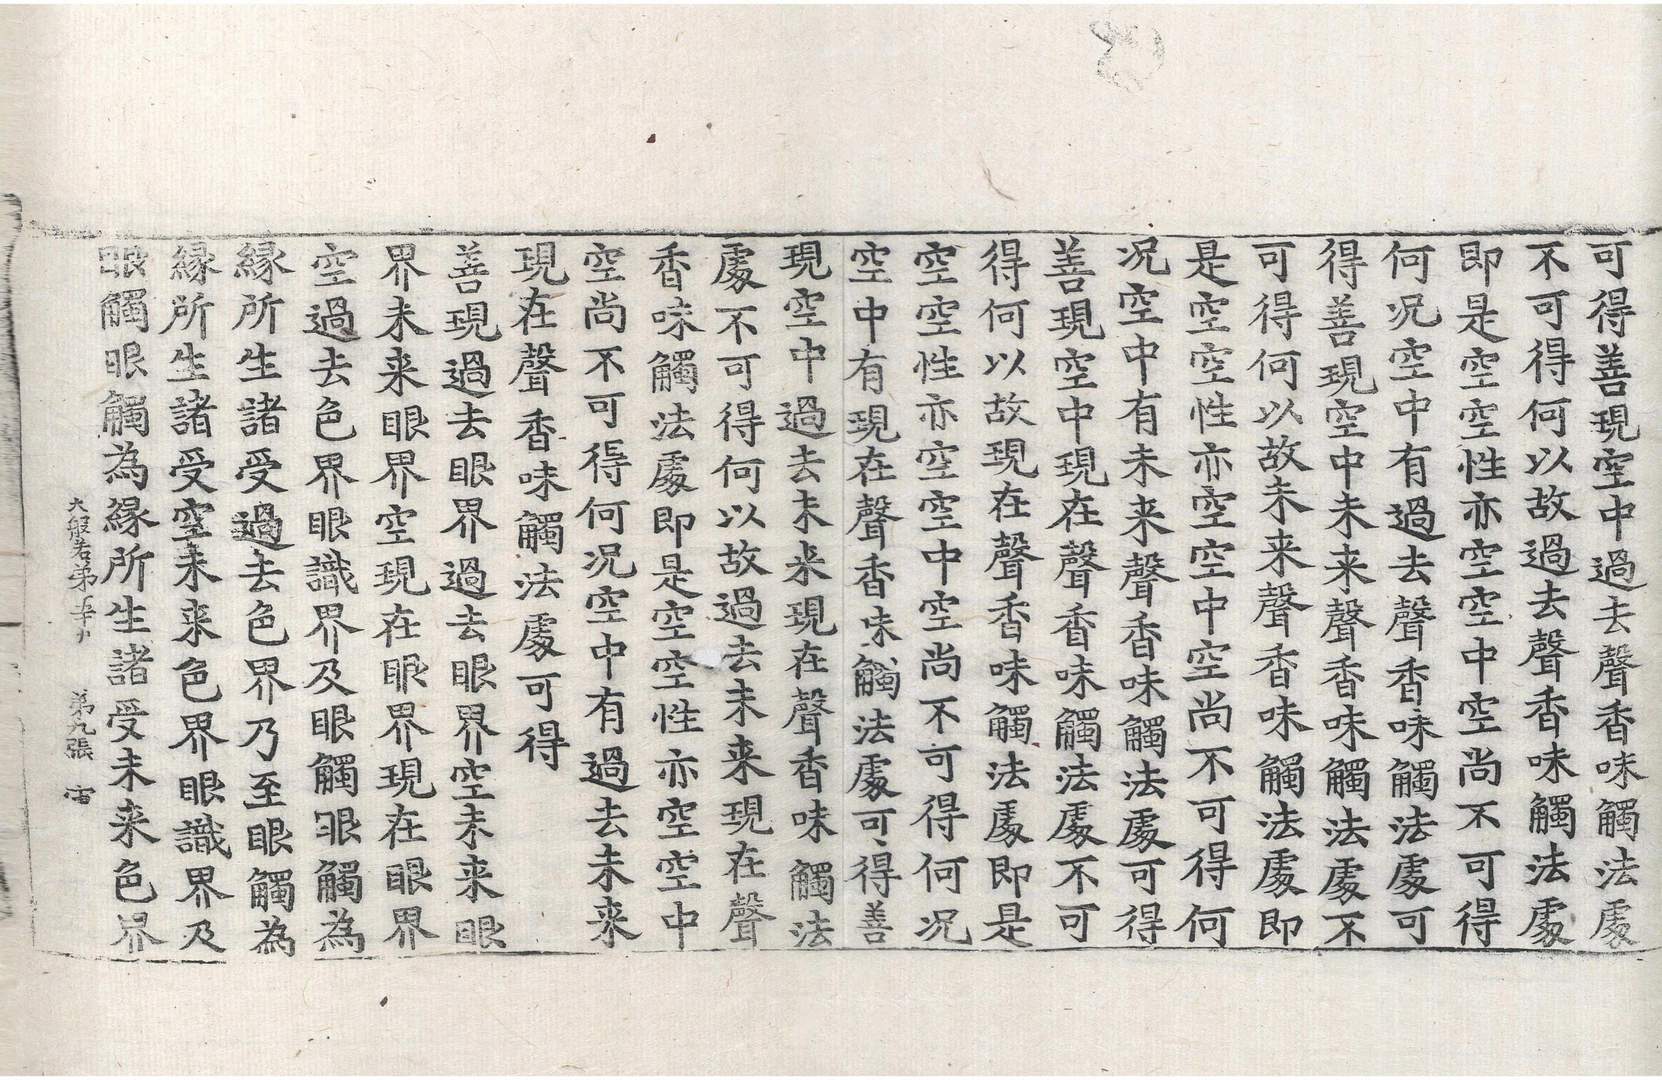 可得善現空中過去聲香味觸法處
不可得何以故過去聲香味觸法處
即是空空性亦空空中空尚不可得
何况空中有過去聲香味觸法處可
得善現空中未来聲香味觸法處不
可得何以故未来聲香味觸法處即
是空空性亦空空中空尚不可得何
况空中有未来聲香味觸法處可得
善現空中現在聲香味觸法處不可
得何以故現在聲香味觸法處即是
空空性亦空空中空尚不可得何况
空中有現在聲香味觸法處可得善
現空中過去未来現在聲香味觸法
處不可得何以故過去未来現在聲
香味觸法處即是空空性亦空空中
空尚不可得何况空中有過去未来
現在聲香味觸法處可得
善現過去眼界過去眼界空未来眼
界未来眼界空現在眼界現在眼界
空過去色界眼識界及眼觸眼觸為
縁所生諸受過去色界乃至眼觸為
縁所生諸受空未来色界眼識界及
眼觸眼觸為縁所生諸受未来色界
大般若弟 弟九張